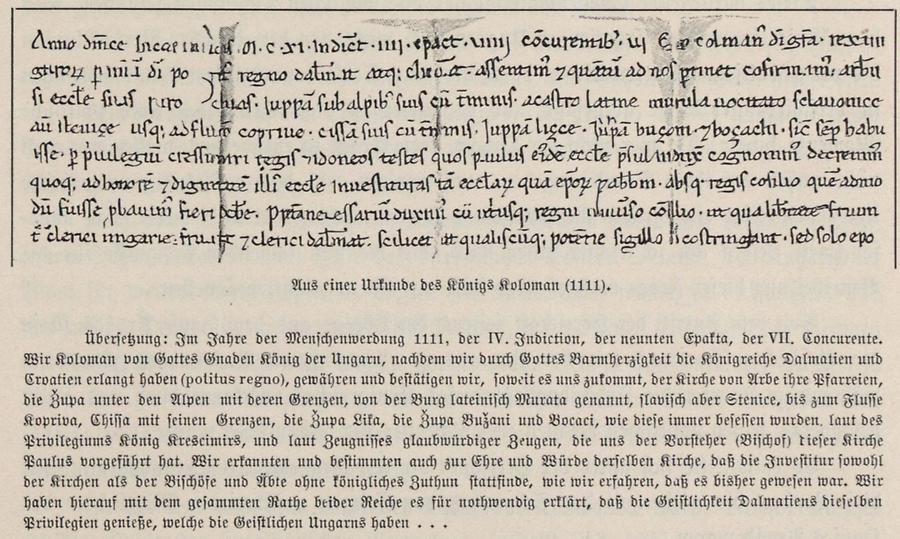 Anno Incar M. c. xi. Indict. iiii. epact. viiii cōcurentib; colman̄ di gr̄a. rex
di po regno dalmat atq; assentim̄ 7 ad nos ptinet cōfirmam̄. arbn̄
si eccl̄e suas paro chias. Juppā sub alpib; suis cū tm̄inis. a castro latine murula uocitato sclauonice
aū usq; ad flum̄ copriue. cissā suis cū tm̄inis. Juppā licce. Juppā 7 bocachi. sic sep̄ habu
isse. p puilegiū regis 7 idoneos testes quos paulus eidē eccl̄e psul cognouim̄ decreuim̄
quoq; ad honorē 7 dignitatē illi eccl̄e inuestituras tā eccl̄arꝝ quā ep̄orꝝ absq; regis cōsilio quē admo
dū fuisse fieri debe. cū utriusq; regni cōsilio. ut qua libertate
clerici ungarie fruūt 7 clerici dalmat. scilicet ut qualiscūq; potētie sigillo cōstringāt. sed solo ep̄o
Aus einer Urkunde des Königs Koloman (1111).
Übersetzung: Im Jahre der Menschenwerdung 1111, der IV. Indiction, der neunten Epakta, der VII. Concurente.
Wir Koloman von Gottes Gnaden König der Ungarn, nachdem wir durch Gottes Barmherzigkeit die Königreiche Dalmatien und
Croatien erlangt haben (politus regno), gewähren und bestätigen wir, soweit es uns zukommt, der Kirche von Arbe ihre Pfarreien,
die Župa unter den Alpen mit deren Grenzen, von der Burg lateinisch Murata genannt, slavisch aber Stenice, bis zum Flusse
Kopriva, Chissa mit seinen Grenzen, die Župa Lika, die Župa Bužani und Bocaci, wie diese immer besessen wurden, laut des
Privilegiums König Krescimirs, und laut Zeugnisses glaubwürdiger Zeugen, die uns der Vorsteher (Bischof) dieser Kirche
Paulus vorgeführt hat. Wir erkannten und bestimmten auch zur Ehre und Würde derselben Kirche, daß die Investitur sowohl
der Kirchen als der Bischöfe und Äbte ohne königliches Zuthun stattfinde, wie wir erfahren, daß es bisher gewesen war. Wir
haben hierauf mit dem gesammten Rathe beider Reiche es für nothwendig erklärt, daß die Geistlichkeit Dalmatiens dieselben
Privilegien genieße, welche die Geistlichen Ungarns haben . . .